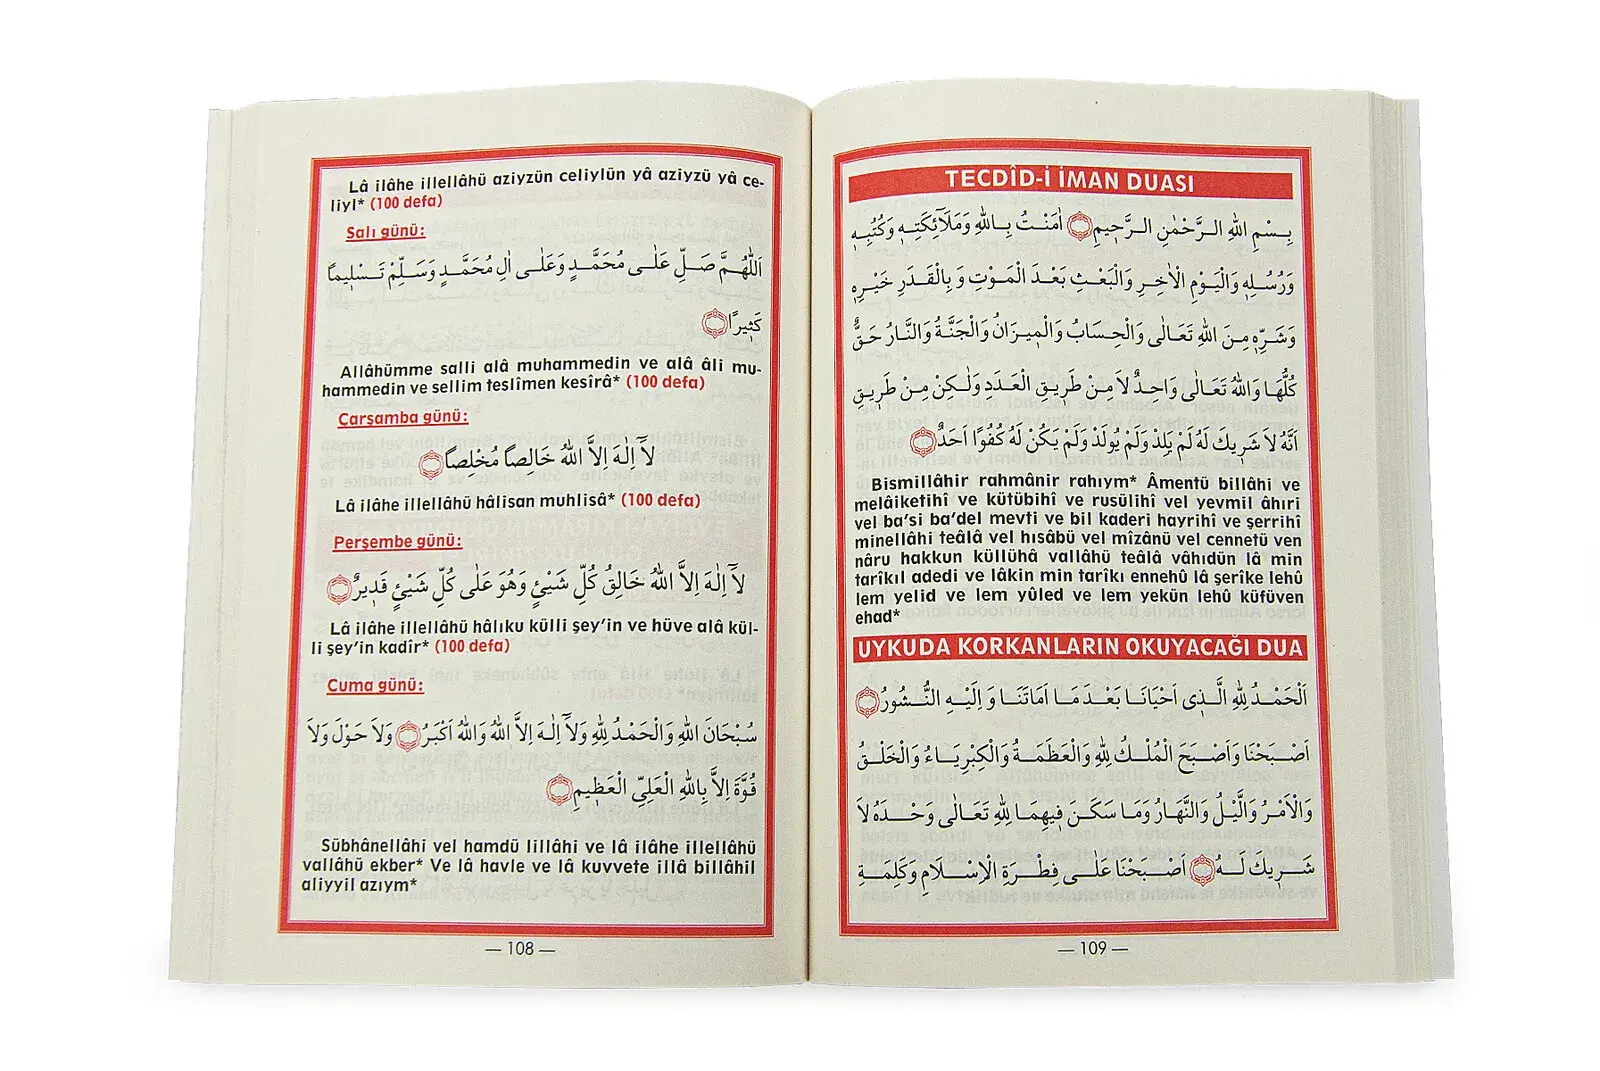 Lâ ilâhe illellâhü aziyzün celiylün yâ aziyzü yâ ce-
liyl* (100 defa)
Salı günü:
اَللّٰهُمَّ صَلِّ عَلٰى مُحَمَّدٍ وَعَلٰى اٰلِ مُحَمَّدٍ وَسَلِّمْ تَسْلِيمًا
كَثِيرًا
Allâhümme salli alâ muhammedin ve alâ âli mu-
hammedin ve sellim teslîmen kesîrâ* (100 defa)
Çarşamba günü:
لَٓا اِلٰهَ اِلَّا اللّٰهُ خَالِصًا مُخْلِصًا
Lâ ilâhe illellâhü hâlisan muhlisâ* (100 defa)
Perşembe günü:
لَٓا اِلٰهَ اِلَّا اللّٰهُ خَالِقُ كُلِّ شَيْئٍ وَهُوَ عَلٰى كُلِّ شَيْئٍ قَدِيرٌ
Lâ ilâhe illellâhü hâlıku külli şey'in ve hüve alâ kül-
li şey'in kadîr* (100 defa)
Cuma günü:
سُبْحَانَ اللّٰهِ وَالْحَمْدُ لِلّٰهِ وَلَٓا اِلٰهَ اِلَّا اللّٰهُ وَاللّٰهُ اَكْبَرُ وَلَا حَوْلَ وَلَا
قُوَّةَ اِلَّا بِاللّٰهِ الْعَلِيِّ الْعَظِيمِ
Sübhânellâhi vel hamdü lillâhi ve lâ ilâhe illellâhü
vallâhü ekber* Ve lâ havle ve lâ kuvvete illâ billâhil
aliyyil azıym*
— 108 —
TECDÎD-İ İMAN DUASI
بِسْمِ اللّٰهِ الرَّحْمٰنِ الرَّحِيمِ اٰمَنْتُ بِاللّٰهِ وَمَلَٓائِكَتِهِ وَكُتُبِهِ
وَرُسُلِهِ وَالْيَوْمِ الْاٰخِرِ وَالْبَعْثِ بَعْدَ الْمَوْتِ وَ بِالْقَدَرِ خَيْرِهِ
وَشَرِّهِ مِنَ اللّٰهِ تَعَالٰى وَالْحِسَابُ وَالْمِيزَانُ وَالْجَنَّةُ وَالنَّارُ حَقٌّ
كُلُّهَا وَاللّٰهُ تَعَالٰى وَاحِدٌ لَا مِنْ طَرِيقِ الْعَدَدِ وَلٰكِنْ مِنْ طَرِيقِ
اَنَّهُ لَا شَرِيكَ لَهُ لَمْ يَلِدْ وَلَمْ يُولَدْ وَلَمْ يَكُنْ لَهُ كُفُوًا اَحَدٌ
Bismillâhir rahmânir rahıym* Âmentü billâhi ve
melâiketihî ve kütübihî ve rusülihî vel yevmil âhıri
vel ba'si ba'del mevti ve bil kaderi hayrihî ve şerrihî
minellâhi teâlâ vel hısâbü vel mîzânü vel cennetü ven
nâru hakkun küllühâ vallâhü teâlâ vâhıdün lâ min
tarîkıl adedi ve lâkin min tarîkı ennehû lâ şerîke lehû
lem yelid ve lem yûled ve lem yekün lehû küfüven
ehad*
UYKUDA KORKANLARIN OKUYACAĞI DUA
اَلْحَمْدُ لِلّٰهِ الَّذِي اَحْيَانَا بَعْدَ مَا اَمَاتَنَا وَ اِلَيْهِ النُّشُورُ
اَصْبَحْنَا وَاَصْبَحَ الْمُلْكُ لِلّٰهِ وَالْعَظَمَةُ وَالْكِبْرِيَاءُ وَالْخَلْقُ
وَالْاَمْرُ وَالَّيْلُ وَالنَّهَارُ وَمَا سَكَنَ فِيهِمَا لِلّٰهِ تَعَالٰى وَحْدَهُ لَا
شَرِيكَ لَهُ اَصْبَحْنَا عَلٰى فِطْرَةِ الْاِسْلَامِ وَكَلِمَةِ
— 109 —